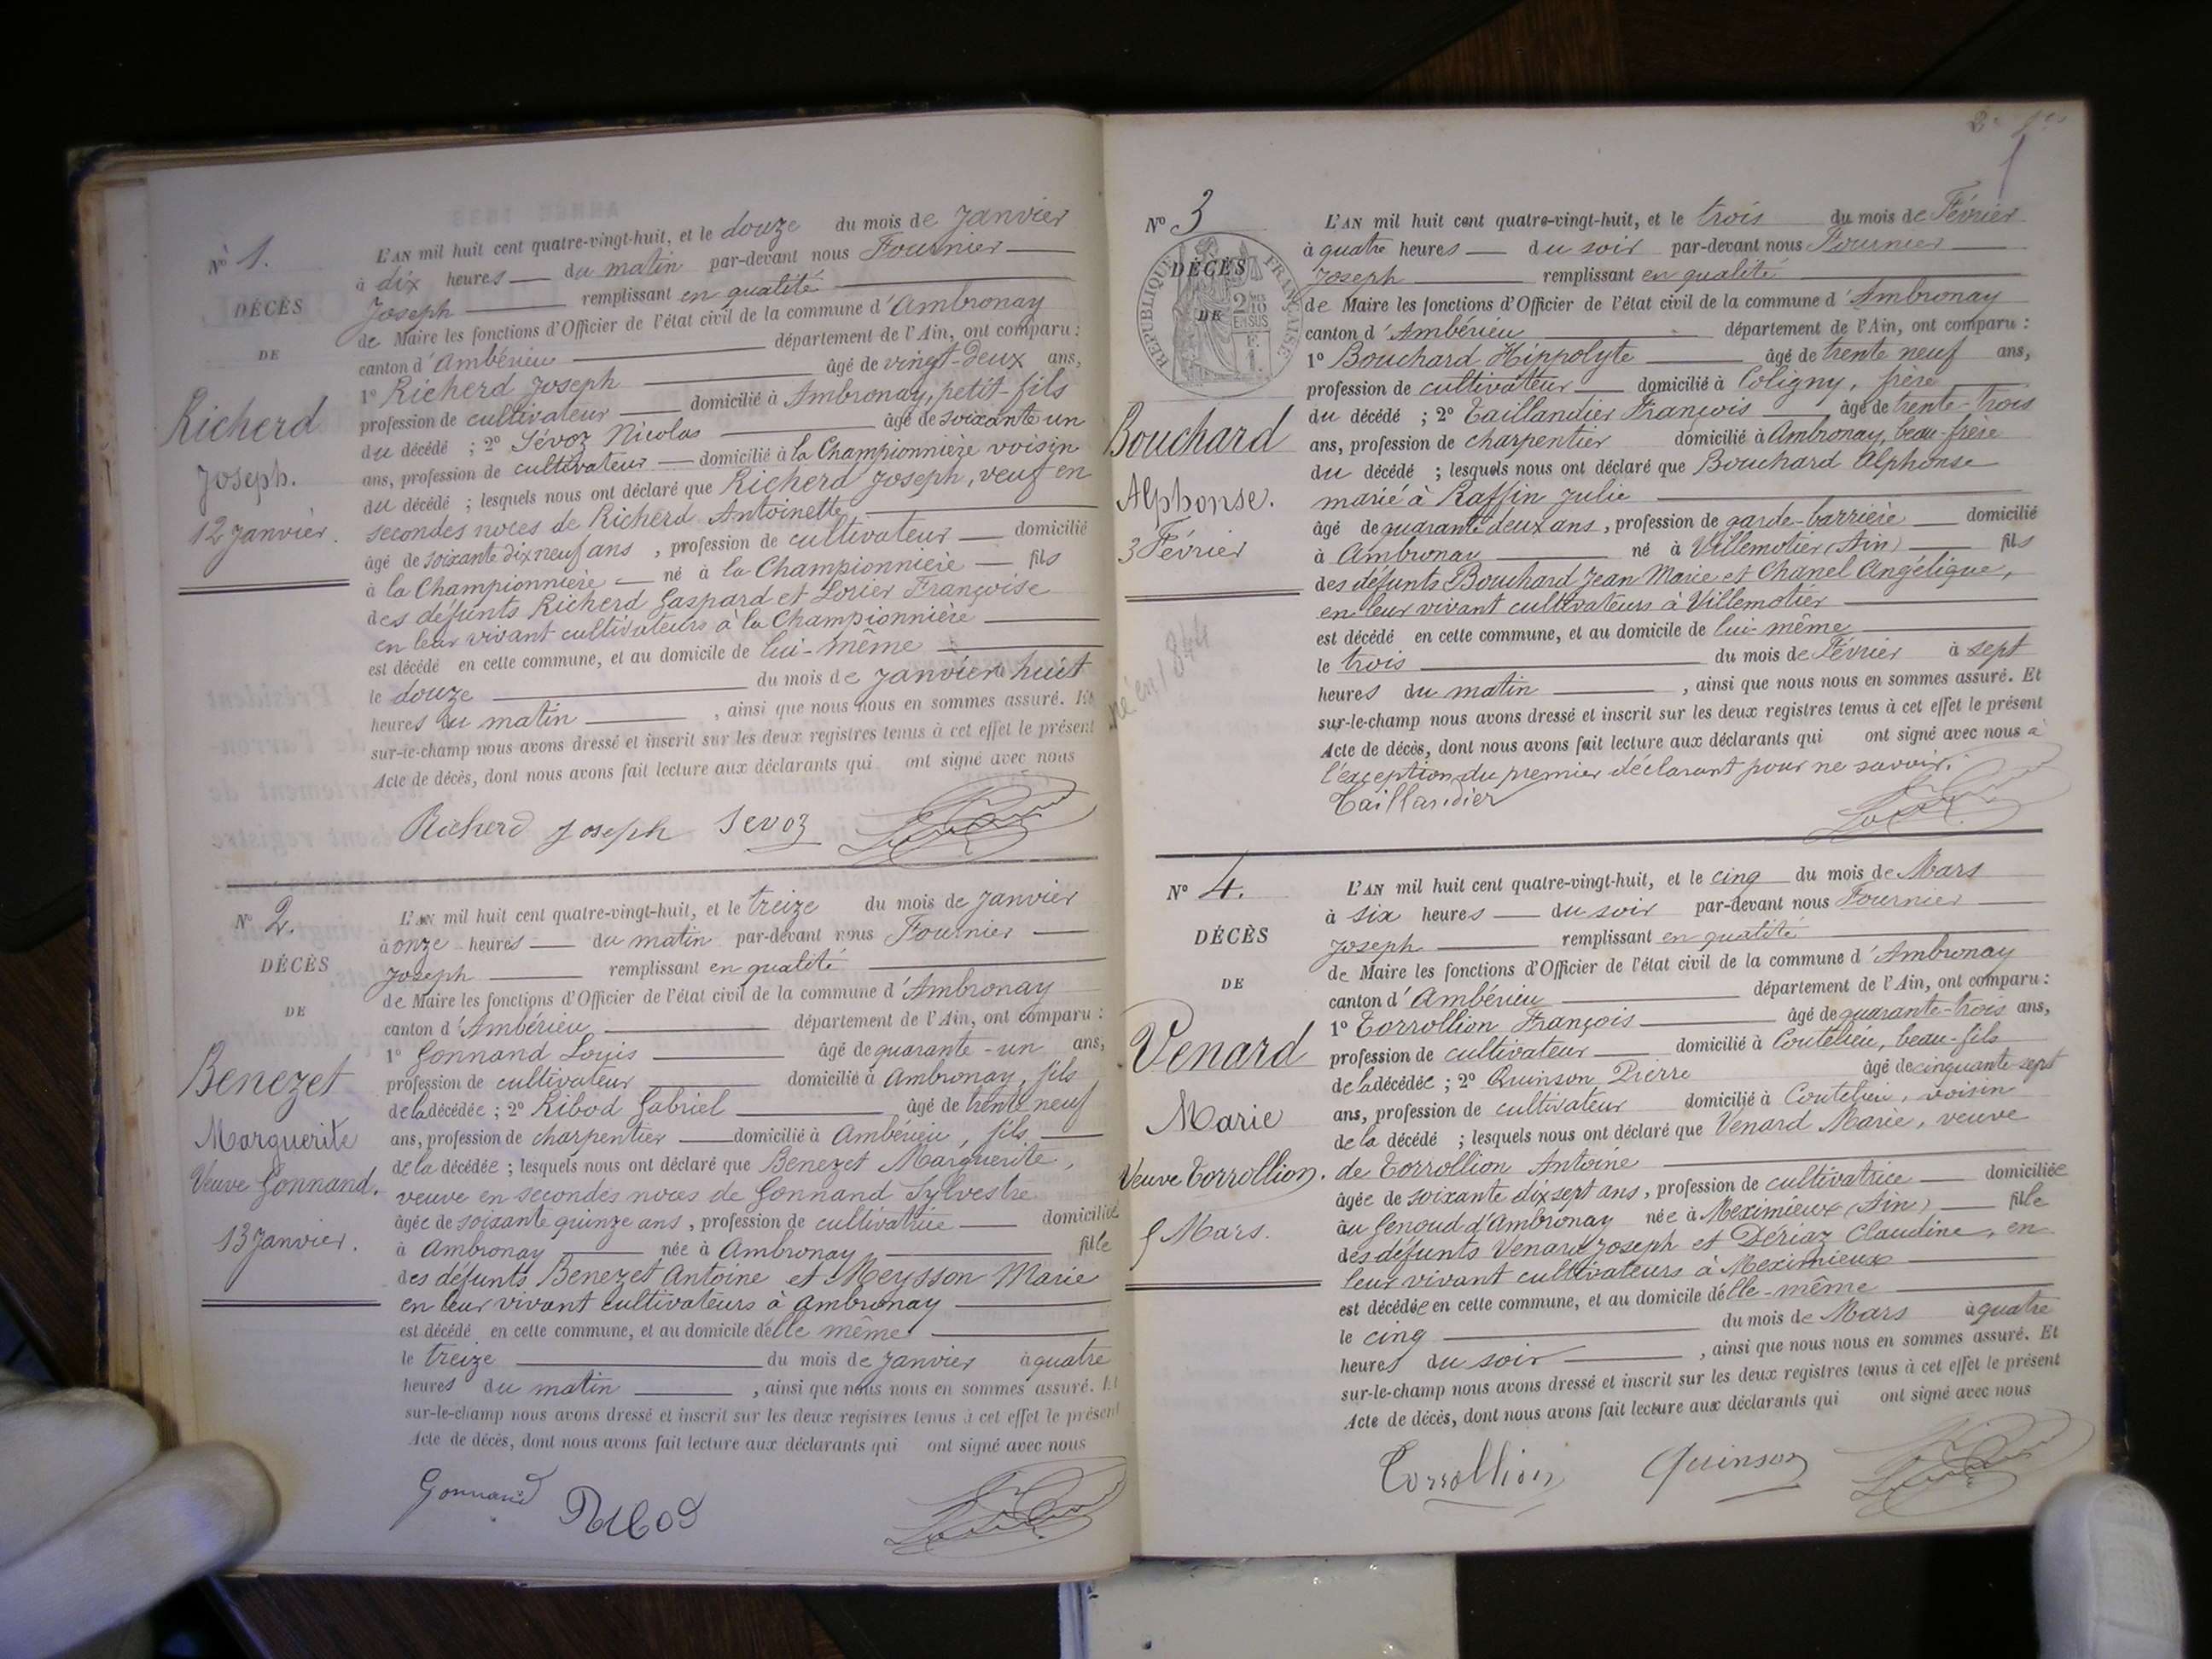 N° 1.
DÉCÈS
DE
Richerd
Joseph.
12 Janvier.
L'AN mil huit cent quatre-vingt-huit, et le douze du mois de Janvier
à dix heures du matin par-devant nous Fournier
Joseph remplissant en qualité
de Maire les fonctions d'Officier de l'état civil de la commune d'Ambronay
canton d'Ambérieu département de l'Ain, ont comparu :
1° Richerd Joseph âgé de vingt-deux ans,
profession de cultivateur domicilié à Ambronay, petit-fils
du décédé ; 2° Sévoz Nicolas âgé de soixante un
ans, profession de cultivateur domicilié à la Championnière voisin
du décédé ; lesquels nous ont déclaré que Richerd Joseph, veuf en
secondes noces de Richerd Antoinette,
âgé de soixante dix neuf ans, profession de cultivateur domicilié
à la Championnière né à la Championnière fils
des défunts Richerd Gaspard et Lorier Françoise
en leur vivant cultivateurs à la Championnière
est décédé en cette commune, et au domicile de lui-même
le douze du mois de Janvier à huit
heures du matin, ainsi que nous nous en sommes assuré. Et
sur-le-champ nous avons dressé et inscrit sur les deux registres tenus à cet effet le présent
Acte de décès, dont nous avons fait lecture aux déclarants qui ont signé avec nous
Richerd Joseph Sevoz
N° 2.
DÉCÈS
DE
Benezet
Marguerite
Veuve Gonnand.
13 Janvier.
L'AN mil huit cent quatre-vingt-huit, et le treize du mois de Janvier
à onze heures du matin par-devant nous Fournier
Joseph remplissant en qualité
de Maire les fonctions d'Officier de l'état civil de la commune d'Ambronay
canton d'Ambérieu département de l'Ain, ont comparu :
1° Gonnand Louis âgé de quarante-un ans,
profession de cultivateur domicilié à Ambronay, fils
de la décédée ; 2° Ribod Gabriel âgé de trente neuf
ans, profession de charpentier domicilié à Ambérieu, fils
de la décédée ; lesquels nous ont déclaré que Benezet Marguerite,
veuve en secondes noces de Gonnand Sylvestre
âgée de soixante quinze ans, profession de cultivatrice domiciliée
à Ambronay née à Ambronay fille
des défunts Benezet Antoine et Meysson Marie
en leur vivant cultivateurs à Ambronay
est décédé en cette commune, et au domicile d'elle même
le treize du mois de Janvier à quatre
heures du matin, ainsi que nous nous en sommes assuré. Et
sur-le-champ nous avons dressé et inscrit sur les deux registres tenus à cet effet le présent
Acte de décès, dont nous avons fait lecture aux déclarants qui ont signé avec nous
Gonnand Ribod
N° 3
RÉPUBLIQUE FRANÇAISE
DÉCÈS
DE
Bouchard
Alphonse.
3 Février
né en 1844
L'AN mil huit cent quatre-vingt-huit, et le trois du mois de Février
à quatre heures du soir par-devant nous Fournier
Joseph remplissant en qualité
de Maire les fonctions d'Officier de l'état civil de la commune d'Ambronay
canton d'Ambérieu département de l'Ain, ont comparu :
1° Bouchard Hippolyte âgé de trente neuf ans,
profession de cultivateur domicilié à Coligny, frère
du décédé ; 2° Taillandier François âgé de trente-trois
ans, profession de charpentier domicilié à Ambronay, beau-frère
du décédé ; lesquels nous ont déclaré que Bouchard Alphonse
marié à Raffin Julie
âgé de quarante deux ans, profession de garde-barrière domicilié
à Ambronay né à Villemotier (Ain) fils
des défunts Bouchard Jean Marie et Chanel Angélique,
en leur vivant cultivateurs à Villemotier
est décédé en cette commune, et au domicile de lui-même
le trois du mois de Février à sept
heures du matin, ainsi que nous nous en sommes assuré. Et
sur-le-champ nous avons dressé et inscrit sur les deux registres tenus à cet effet le présent
Acte de décès, dont nous avons fait lecture aux déclarants qui ont signé avec nous à
l'exception du premier déclarant pour ne savoir.
Taillandier
N° 4.
DÉCÈS
DE
Venard
Marie
Veuve Torrollion.
5 Mars.
L'AN mil huit cent quatre-vingt-huit, et le cinq du mois de Mars
à six heures du soir par-devant nous Fournier
Joseph remplissant en qualité
de Maire les fonctions d'Officier de l'état civil de la commune d'Ambronay
canton d'Ambérieu département de l'Ain, ont comparu :
1° Torrollion François âgé de quarante-trois ans,
profession de cultivateur domicilié à Coutelieu, beau-fils
de la décédée ; 2° Quinson Pierre âgé de cinquante-sept
ans, profession de cultivateur domicilié à Coutelieu, voisin
de la décédé ; lesquels nous ont déclaré que Venard Marie, veuve
de Torrollion Antoine
âgée de soixante dix sept ans, profession de cultivatrice domiciliée
au Genoud d'Ambronay née à Meximieux (Ain) fille
des défunts Venard Joseph et Dériaz Claudine, en
leur vivant cultivateurs à Meximieux
est décédée en cette commune, et au domicile d'elle-même
le cinq du mois de Mars à quatre
heures du soir, ainsi que nous nous en sommes assuré. Et
sur-le-champ nous avons dressé et inscrit sur les deux registres tenus à cet effet le présent
Acte de décès, dont nous avons fait lecture aux déclarants qui ont signé avec nous
Torrollion Quinson